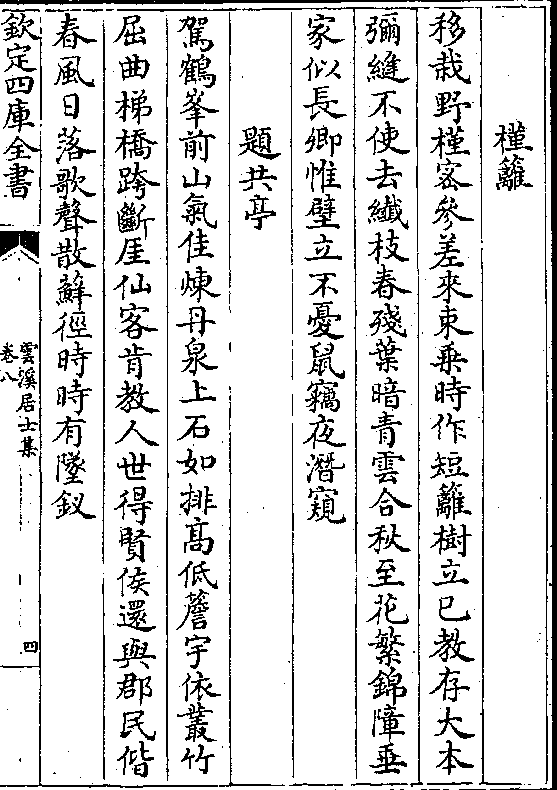 槿籬
移栽野槿宻參差來束乗時作短籬樹立已教存大本
彌縫不使去纎枝春殘葉暗青雲合秋至花繁錦障垂
家似長卿惟壁立不憂鼠竊夜潛窺
題共亭
駕鶴峯前山氣佳煉丹泉上石如排髙低簷宇依叢竹
屈曲梯橋跨斷厓仙客肯教人世得賢侯還與郡民偕
春風日落歌聲散蘚徑時時有墜釵
欽定四庫全書
雲溪居士集
卷八
四